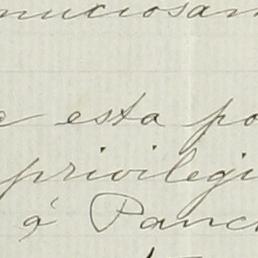 nuciosam
e esta po
privilegi
á Panc